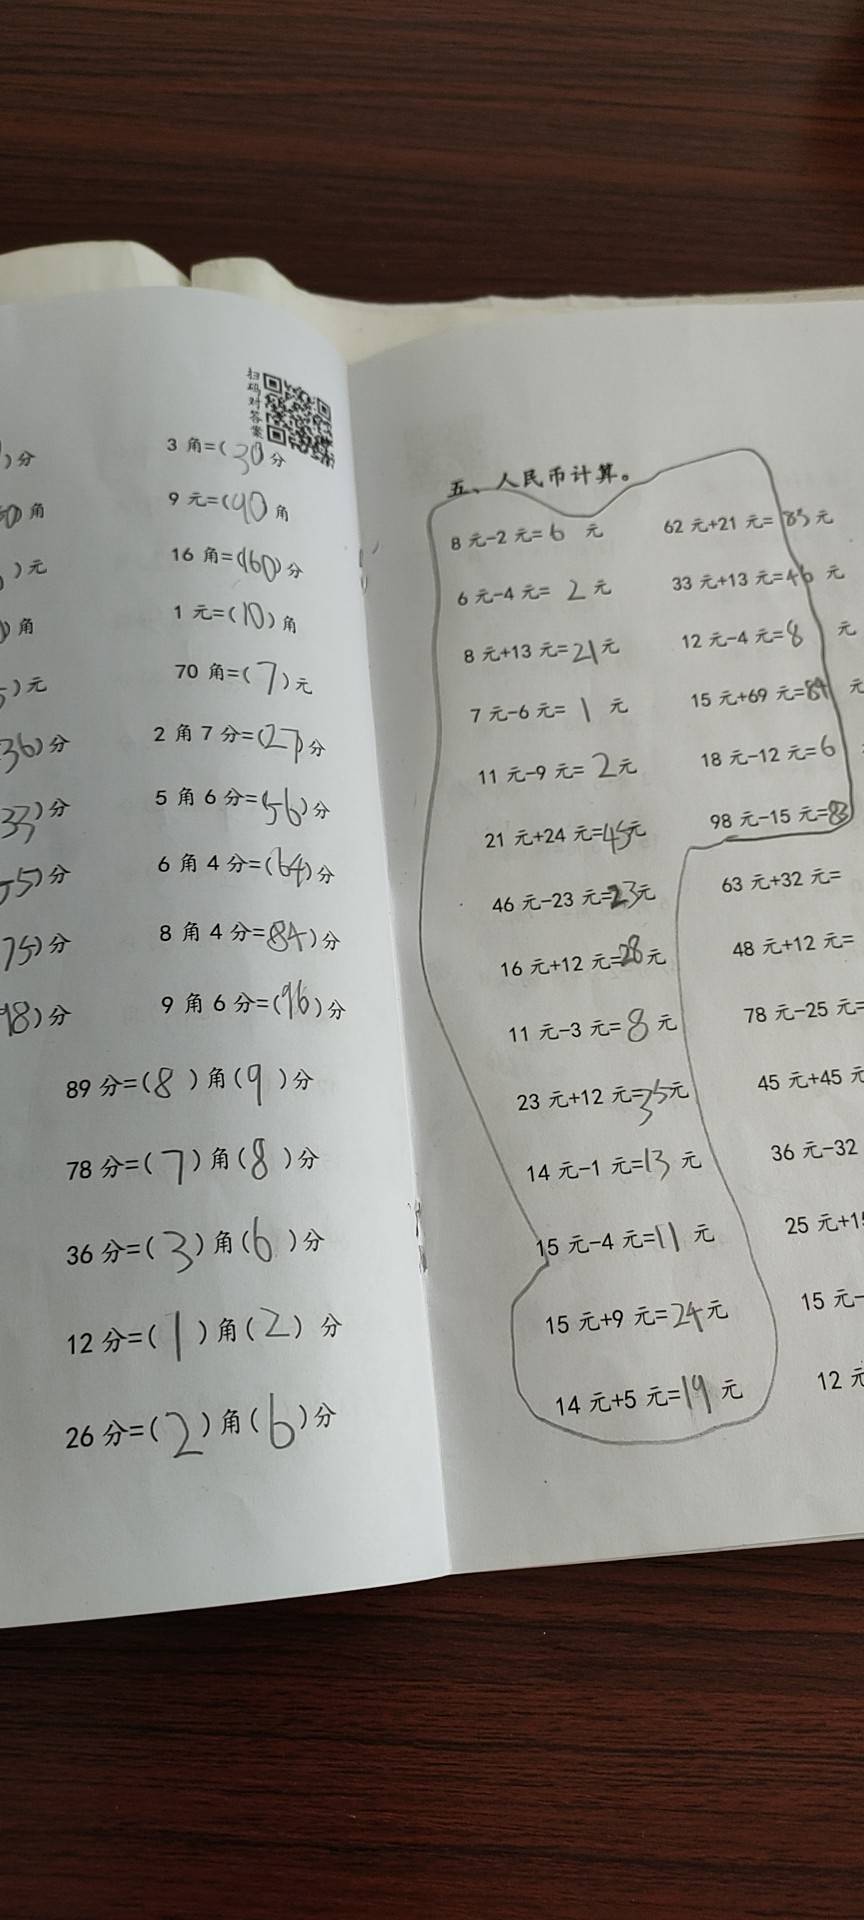 扫码对答案
)分
3 角=(30)分
0)角
9 元=(90)角
)元
16 角=(160)分
)角
1 元=(10)角
)元
70 角=(7)元
36)分
2 角 7 分=(27)分
33)分
5 角 6 分=(56)分
55)分
6 角 4 分=(64)分
75)分
8 角 4 分=(84)分
98)分
9 角 6 分=(96)分
89 分=(8)角(9)分
78 分=(7)角(8)分
36 分=(3)角(6)分
12 分=(1)角(2)分
26 分=(2)角(6)分
五、人民币计算。
8 元-2 元=6 元
62 元+21 元=83 元
6 元-4 元=2 元
33 元+13 元=46 元
8 元+13 元=21 元
12 元-4 元=8 元
7 元-6 元=1 元
15 元+69 元=84 元
11 元-9 元=2 元
18 元-12 元=6
21 元+24 元=45 元
98 元-15 元=83
46 元-23 元=23 元
63 元+32 元=
16 元+12 元=28 元
48 元+12 元=
11 元-3 元=8 元
78 元-25 元=
23 元+12 元=35 元
45 元+45 元
14 元-1 元=13 元
36 元-32
15 元-4 元=11 元
25 元+1
15 元+9 元=24 元
15 元-
14 元+5 元=19 元
12 元